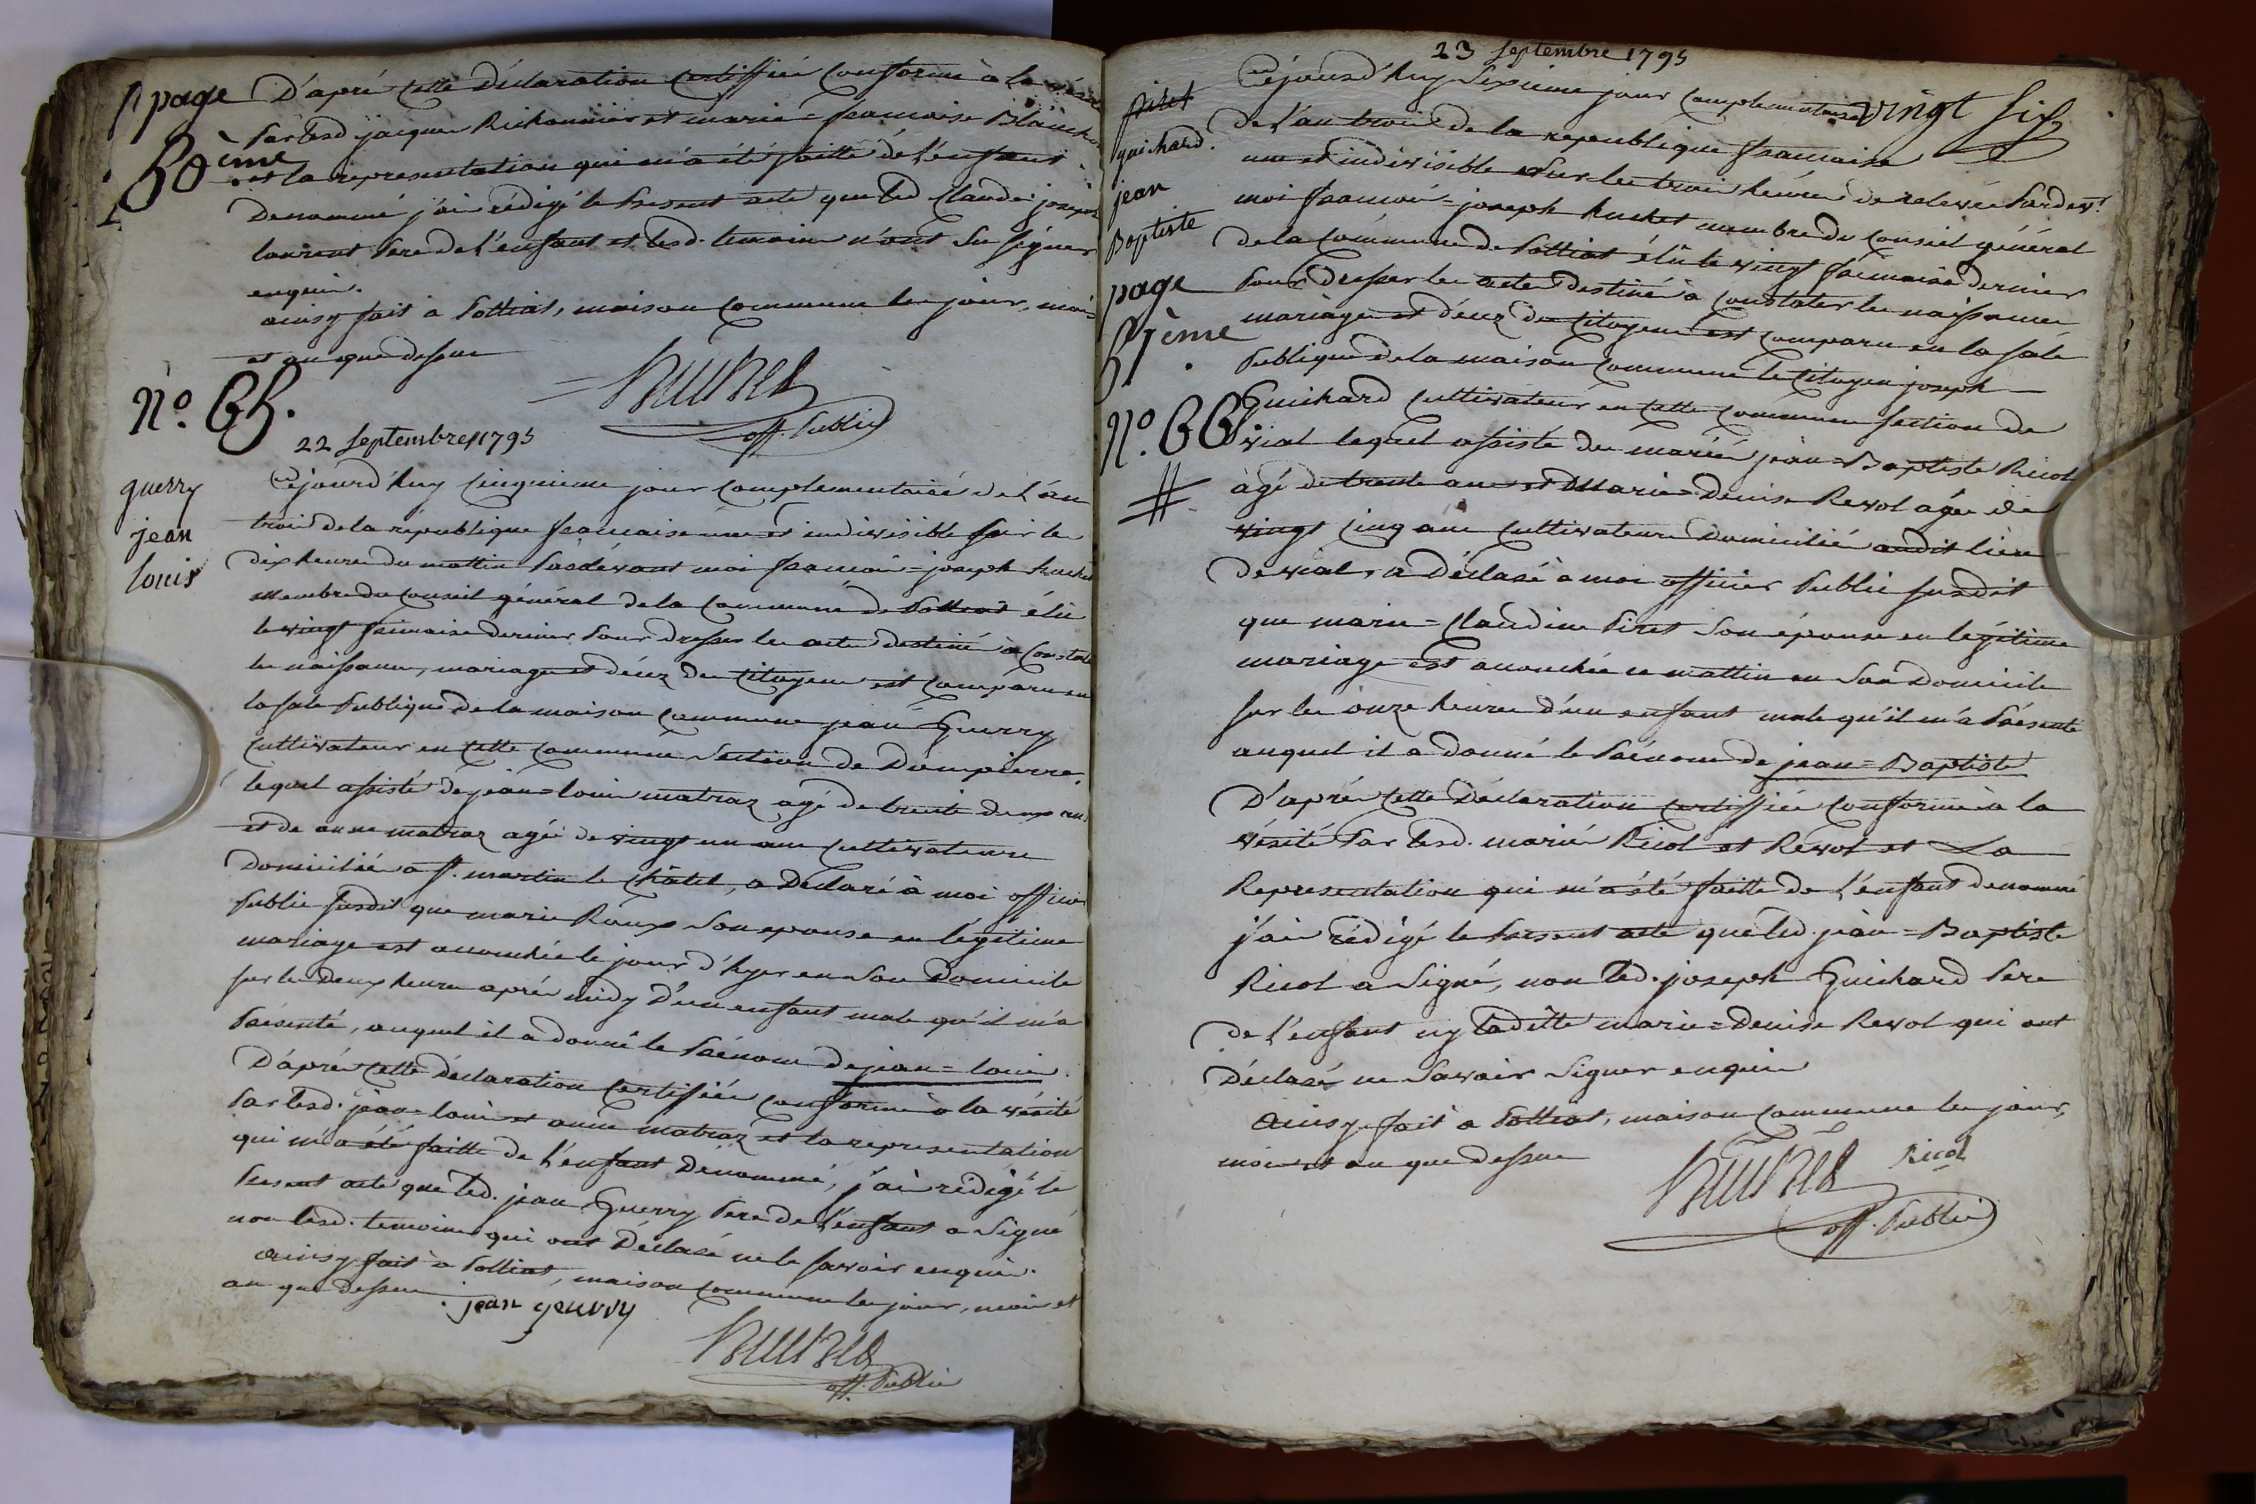 page
50ème
D'aprè cette Déclaration certiffiée conforme à la vérité
par lesd jacque Richonnier et marie=francoise Blanch
et la representation qui m'a été faitte de l'enfant
Denommé j'ai rédigé le present acte que led Claude joseph
laurent pere de l'enfant et lesd. temoins n'ont su signer
enquis.
ainsy fait à Polliat, maison commune les jour, mois
et an que dessus
off. Public
No. 65.
22 septembre 1795
guerry
jean
louis
Cejourd'huy cinquieme jour complementaire de l'an
trois de la république francaise une et indivisible sur le
dix heure du mattin pardevant moi francois=joseph huchet
membre du conseil général de la commune de Polliat élu
le vingt frimaire dernier pour dresser les acte destiné à constater
les naissance, mariage et décez des citoyens est comparu en
la sale publique de la maison commune jean Guerry
cultivateur en cette commune section de Dompierre,
lequel assisté de jean=louis matraz agé de trente deux ans
et de anne matraz agée de vingt un ans cultivateurs
domiciliée a st. martin le châtel, a déclaré à moi officier
public susdit que marie Roux son epouse en légitime
mariage est accouchée le jour d'hyer en son domicile
sur les deux heure aprè midy d'un enfant male qu'il m'a
présenté, auquel il a donné le prénom de jean=louis.
D'aprè cette déclaration certiffiée conforme à la vérité
par lesd. jean=louis et anne matraz et la representation
qui m'a été faitte de l'enfant dénommé, j'ai rédigé le
present acte que led. jean Guerry pere de l'enfant a signé
non lesd. temoins qui ont déclaré ne le savoir enquis.
ainsy fait à Polliat, maison commune les jour, mois et
an que dessus
jean gerrry
off. Public
23 septembre 1795
vingt six
piret
guichard.
jean
Baptiste
page
51ème
No. 66.
Cejourd'huy sixieme jour complementaire
de l'an trois de la republique francaise
une et indivisible sur les trois heure de relevée pardevt.
moi francois=joseph huchet membre du conseil général
de la commune de Polliat élu le vingt frimaire dernier
pour dresser les actes destiné à constater les naissance,
mariage et décez des citoyens est comparu en la sale
publique de la maison commune le citoyen joseph
Guichard cultivateur en cette commune section de
vial lequel assisté des mariés jean=Baptiste Ricol
âgé de trente ans et Marie=Denise Revol agée de
vingt cinq ans cultivateurs domiciliés audit lieu
de vial, a déclaré à moi officier public susdit
que marie=Claudine Piret son épouse en légitime
mariage est accouchée ce mattin en son domicile
sur les onze heure d'un enfant male qu'il m'a présenté
auquel il a donné le prénom de jean=Baptiste
D'aprè cette déclaration certiffiée conforme à la
vérité par lesd. mariés Ricol et Revol et la
representation qui m'a été faitte de l'enfant denommé
j'ai rédigé le present acte que led. jean=Baptiste
Ricol a signé, non led. joseph Guichard pere
de l'enfant ny laditte marie=Denise Revol qui ont
déclaré ne savoir signer enquis
ainsy fait a Polliat, maison commune les jour,
mois et an que dessus
Ricol
off. Public